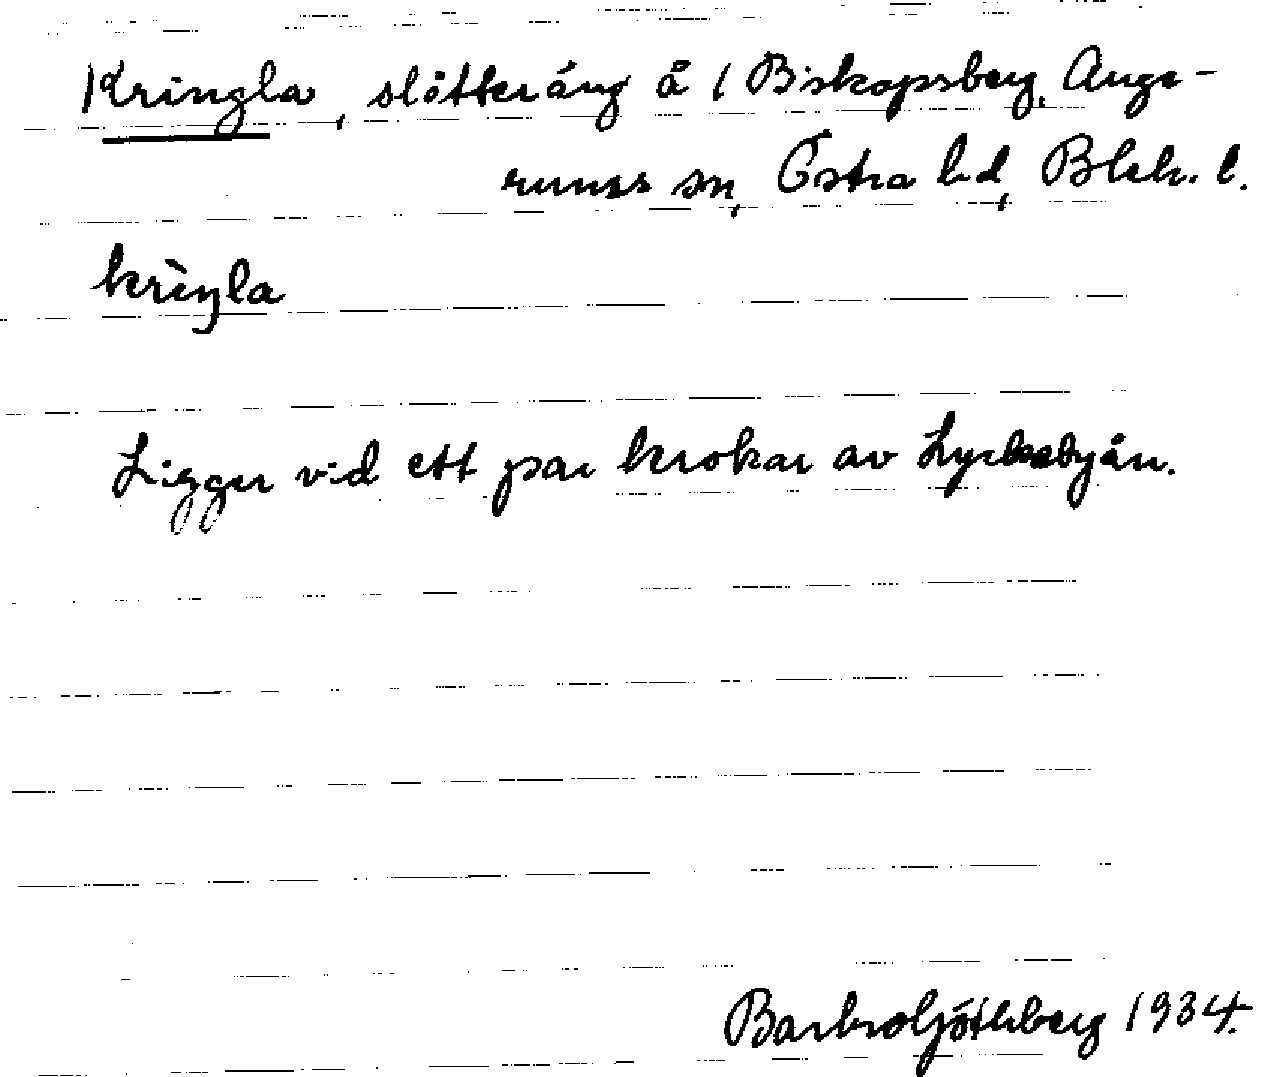 Kringla, slåtteräng å 1 Biskopsberg, Auge-
rums sn, Östra hd, Blek. l.
krìŋla
Ligger vid ett par krokar av Lyckebyån.
Barbro Götheberg 1934.